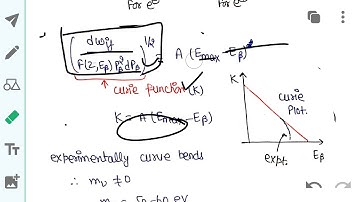 For e⊖ For e⊕
(dwif / F(Z,Eβ) Pβ² dPβ)^1/2 A (Emax - Eβ)²
curie function (K)
K = A (Emax - Eβ)
K
curie
Plot.
expt.
Eβ
experimentally curve bends
∴ mν ≠ 0